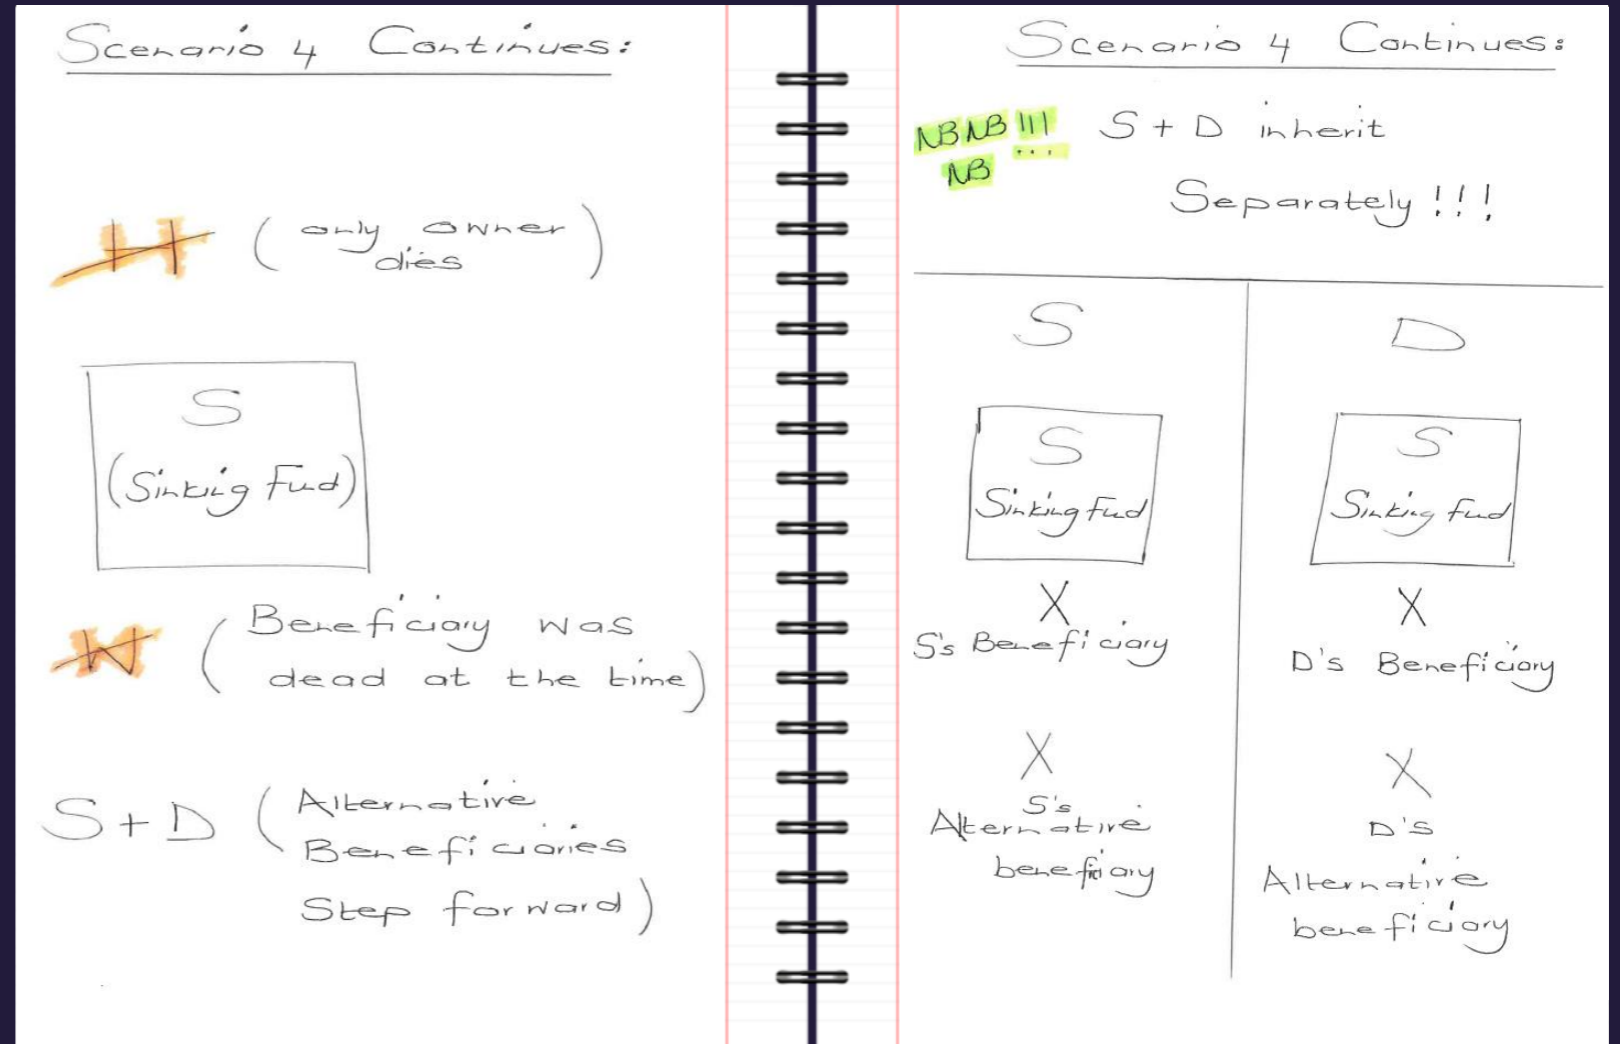 Scenario 4 Continues:
H (only owner
dies)
S
(Sinking Fund)
W (Beneficiary was
dead at the time)
S + D (Alternative
Beneficiaries
Step forward)
Scenario 4 Continues:
NB NB !!! S + D inherit
NB
Separately !!!
S
D
S
Sinking Fund
X
S's Beneficiary
X
S's
Alternative
beneficiary
S
Sinking Fund
X
D's Beneficiary
X
D's
Alternative
beneficiary